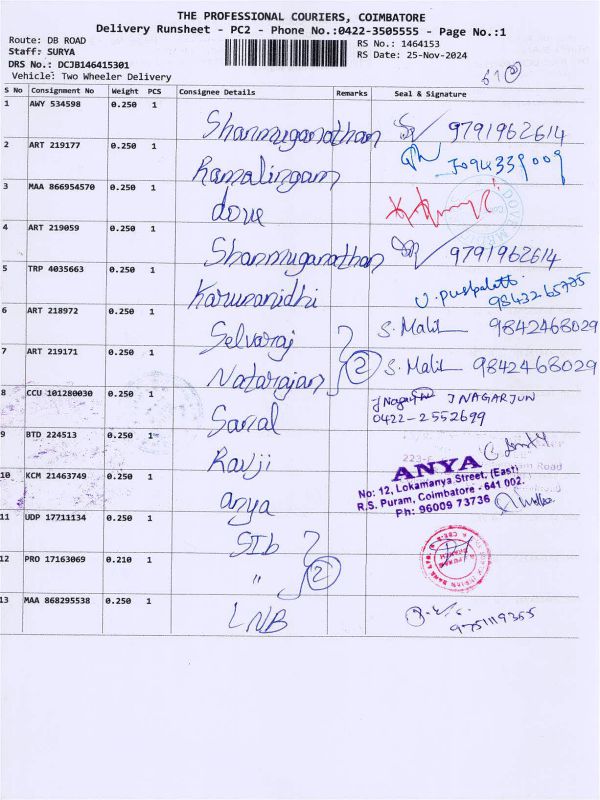 THE PROFESSIONAL COURIERS, COIMBATORE
Delivery Runsheet - PC2 - Phone No.:0422-3505555 - Page No.:1
Route: DB ROAD
RS No.: 1464153
Staff: SURYA
RS Date: 25-Nov-2024
DRS No.: DCJB146415301
Vehicle: Two Wheeler Delivery
S No Consignment No Weight PCS Consignee Details Remarks Seal & Signature
1 AWY 534598 0.250 1 Shanmuganathan 9791962614
2 ART 219177 0.250 1 Ramalingam
3 MAA 866954570 0.250 1 dove
4 ART 219059 0.250 1 Shanmuganathan 9791962614
5 TRP 4035663 0.250 1 Karunanidhi
6 ART 218972 0.250 1 Selvaraj S. Malik 9842468029
7 ART 219171 0.250 1 Natarajan 2 S. Malik 9842468029
8 CCU 101280030 0.250 1 Saral J NAGARJUN
0422-2552699
9 BTD 224513 0.250 1 Ravji
10 KCM 21463749 0.250 1 anya
ANYA
No: 12, Lokamanya Street, (East)
R.S. Puram, Coimbatore - 641 002.
Ph: 96009 73736
11 UDP 17711134 0.250 1 SIb
12 PRO 17163069 0.210 1 " 2
13 MAA 868295538 0.250 1 LNB